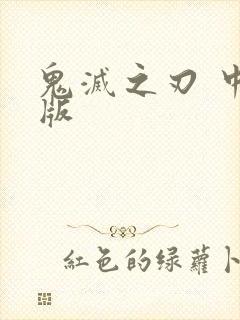 鬼滅之刃 中
版
紅色的绿蘿卜